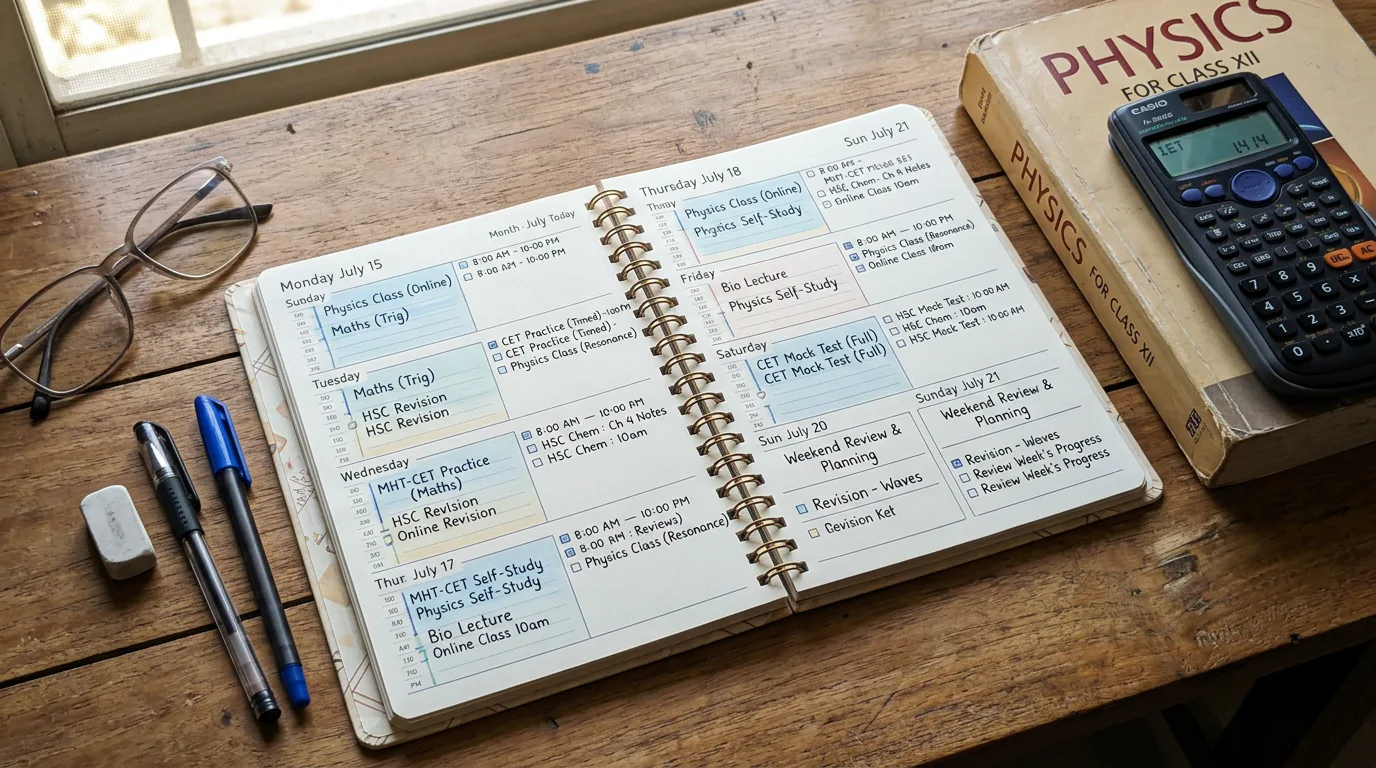 Month - July Today
Monday July 15
Sunday
Physics Class (Online)
Maths (Trig)
8:00 AM - 10:00 PM
8:00 AM - 10:00 PM
Tuesday
Maths (Trig)
HSC Revision
HSC Revision
CET Practice (Timed)
CET Practice (Timed) -
Physics Class (Resonance)
Wednesday
MHT-CET Practice
(Maths)
HSC Revision
Online Revision
8:00 AM — 10:00 AM
HSC Chem : Ch 4 Notes
HSC Chem : 10am
Thur. July 17
MHT-CET Self-Study
Physics Self-Study
Bio Lecture
Online Class 10am
PM
8:00 AM — 10:00 PM
8:00 AM : Reviews)
Physics Class (Resonance)
Sun July 21
Thursday July 18
Physics Class (Online)
Physics Self-Study
HSC Chem - Ch Notes
Online Class 10am
Friday
Bio Lecture
Physics Self-Study
8:00 AM — 10:00 PM
Physics Class (Resonance)
Online Class
Saturday
CET Mock Test (Full)
CET Mock Test (Full)
HSC Mock Test : 10:00 AM
HSC Chem : 10am
HSC Mock Test : 10:00 AM
Sun July 20
Weekend Review &
Planning
Revision - Waves
Gevision Ket
Sunday July 21
Weekend Review &
Planning
Revision - Waves
Review Week's Progress
Review Week's Progress
PHYSICS
FOR CLASS XII
PHYSICS FOR CLASS XII
CASIO
1ET 1.414
AC
7 8 9
4 5 6
1 2 3
0